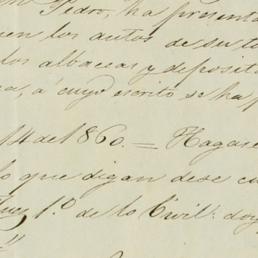 Pedro, ha present
en los autos de su te
los albaceas y deposit
a, á cuyo escrito se ha p
14 del 1860. = Hagase
lo que digan dese cu
Juez 1.º de lo Civil: doy